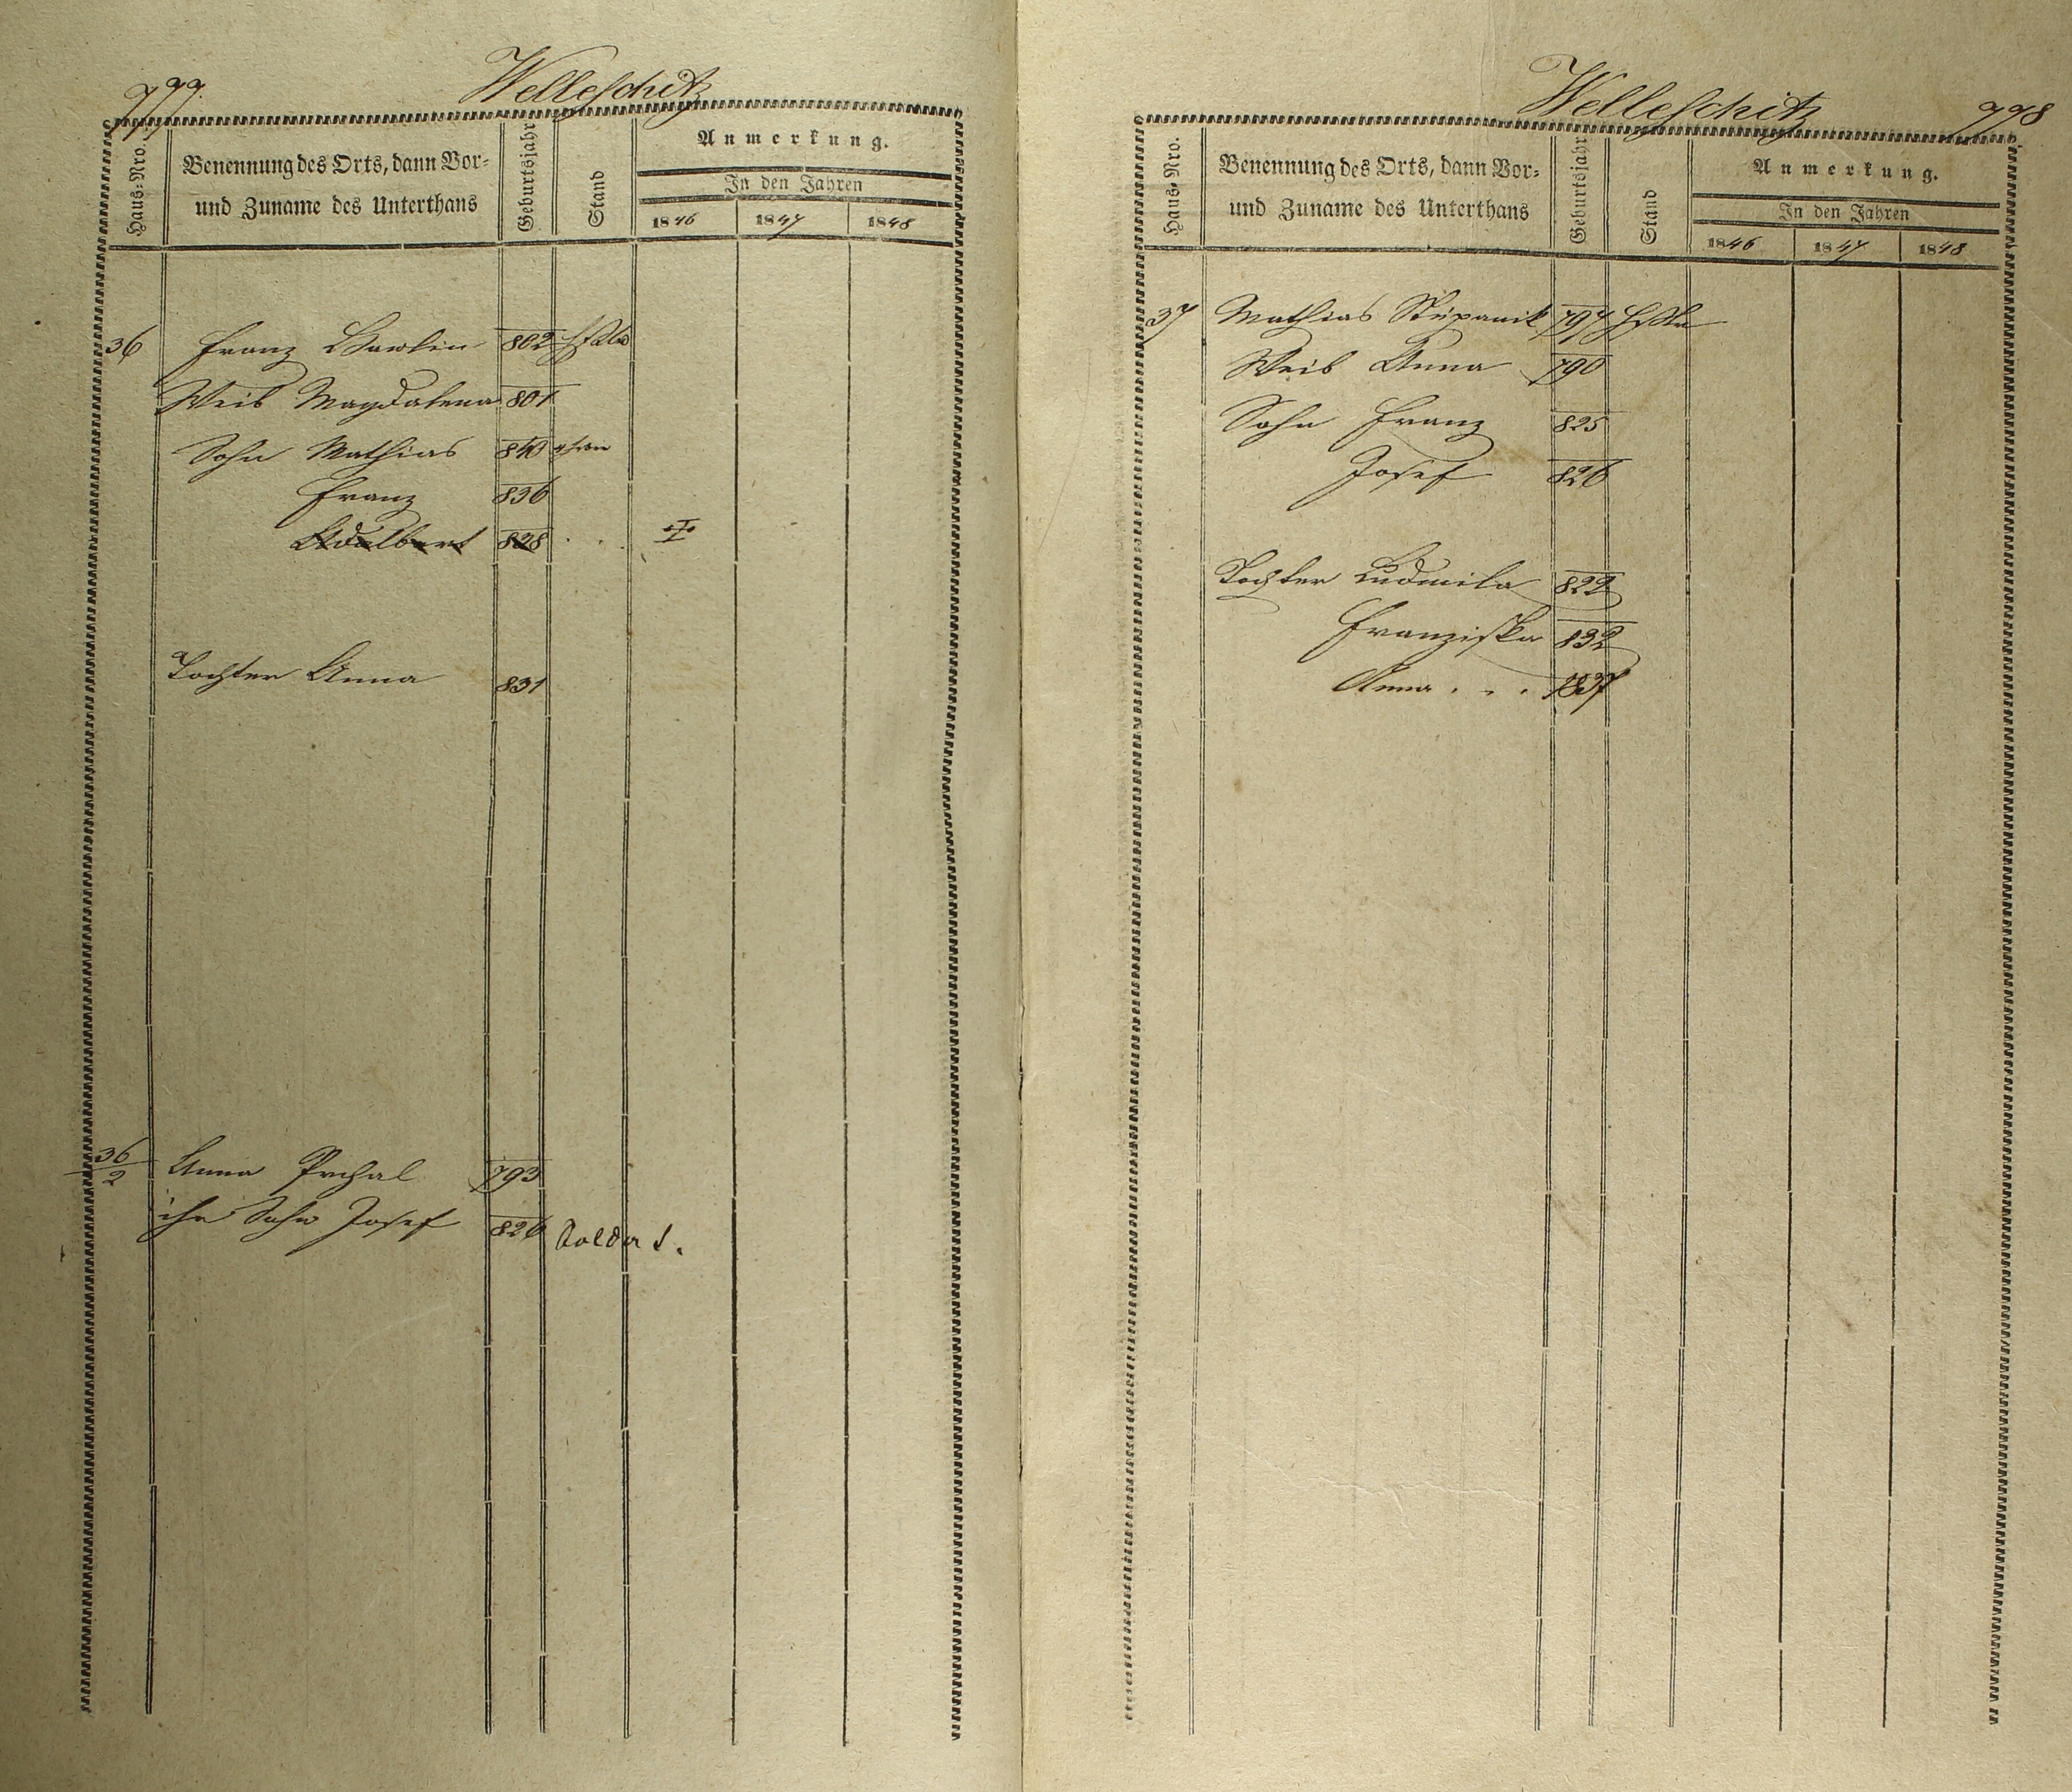 777.
Welleschitz
Haus-Nro.
Benennung des Orts, dann Vor-
und Zuname des Unterthans
Geburtsjahr
Stand
Anmerkung.
In den Jahren
1846 1847 1848
36 Franz 802
Weib Magdalena 801
Sohn Mathias 840
Franz 836
Adalbert 828
Tochter Anna 831
36/2 Anna Prchal 793
ihr Sohn Josef 826 Soldat.
Welleschitz
778
Haus-Nro.
Benennung des Orts, dann Vor-
und Zuname des Unterthans
Geburtsjahr
Stand
Anmerkung.
In den Jahren
1846 1847 1848
37 Mathias Stěpanik 797
Weib Anna 790
Sohn Franz 825
Josef 826
Tochter Ludmila 822
Franziska 832
Anna . . . 1837